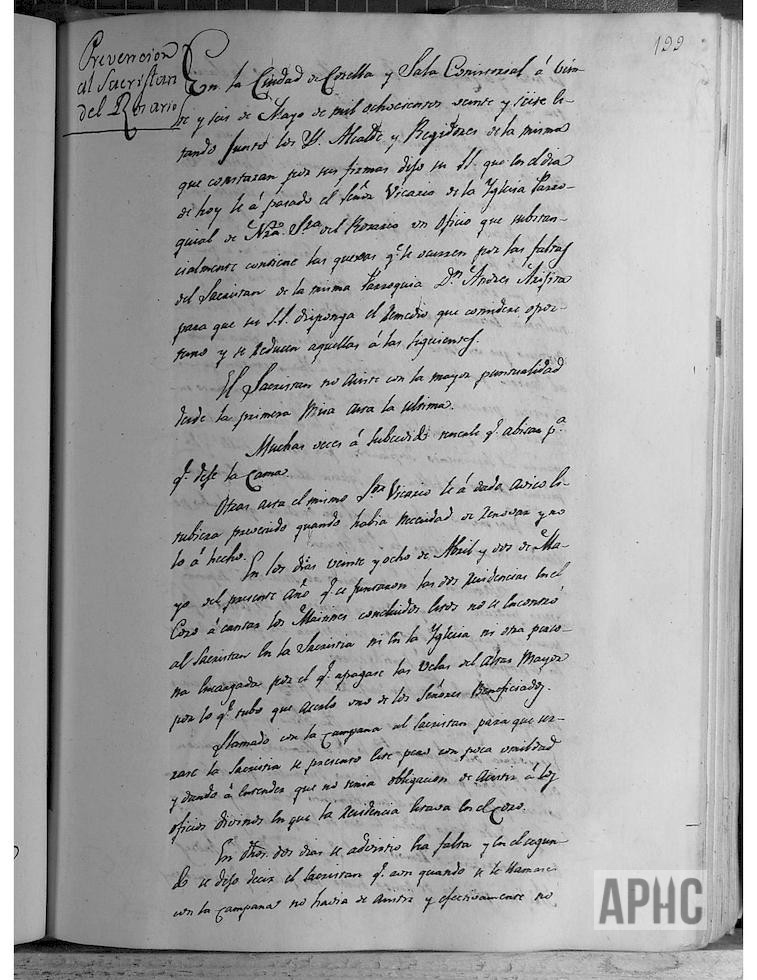 199
Prevencion
al Sacristan
del Rosario
En la Ciudad de Corella y Sala Consistorial á vein-
te y seis de Mayo de mil ochocientos veinte y siete es-
tando juntos los S.S. Alcalde y Regidores de la misma
que constaran por sus firmas dijo su S.S. que en el dia
de hoy le á pasado el Señor Vicario de la Yglesia Parro-
quial de Nra. Sra. del Rosario un Oficio que substan-
cialmente contiene las quejas q.e le ocurren por las faltas
del Sacristan de la misma Parroquia Dn. Andres
para que su S.S. disponga el Remedio que considere opor-
tuno y se Reducen aquellas á las siguientes.
El Sacristan no asiste con la mayor puntualidad
desde la primera Misa asta la ultima.
Muchas veces á subcedido q.e abisar p.a
q.e deje la Cama.
Otras asta el mismo Sor. Vicario le á dado aviso es-
tubiera prevenido quando habia necesidad de Renovar y no
lo á hecho.
En los dias veinte y ocho de Abril y dos de Ma-
yo del presente Año q.e se juntaron las dos Residencias en el
Coro á cantar los Maitines concluidos estos no se encontró
al Sacristan en la Sacristia ni en la Yglesia ni otra perso-
na encargada por el q.e apagase las Velas del Altar Mayor
por lo q.e tubo que acerlo uno de los Señores Beneficiados.
Llamado con la campana al Sacristan para que cer-
rase la Sacristia se presento este pero con poca umildad
y dando á entender que no tenia obligacion de Asistir á los
oficios divinos en que la Residencia estava en el Coro.
En dhos. dos dias se advirtio la falta y en el segun-
do se dejo decir el Sacristan q.e aun quando se le llamase
con la campana no havia de asistir y efectivamente no
APHC